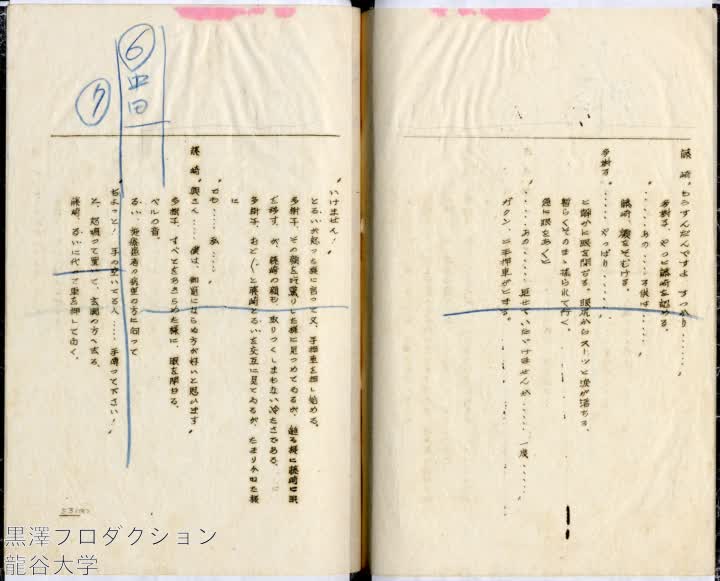 藤崎「もうすんだんですよ すっかり……」
多樹子、やっと藤崎を認める。
「……あの……子供は……」
藤崎、顔をそむける。
多樹子「……やっぱり……」
と静かに眼を閉ぢる。眼尻からスーッと涙が落ちる。
暫らくそのまゝ揺られて行く。
急に眼をあくと
「……あの……見せていたゞけませんか……一度……」
ガクン、と手押車がとまる。
「いけません！」
とるいが怒った様に言って又、手押車を押し始める。
多樹子、その顔を
を移す。が、藤崎の顔も、取りつくしまもない冷たさである。
多樹子、おど／＼と藤崎とるいを交互に見てゐるが、たまりかねた様
に
「でも……私……」
藤崎「奥さん……僕は、御覧にならぬ方が好いと思います」
多樹子、すべてをあきらめた様に、眼を閉ぢる。
ベルの音。
るい、
「ちょっと！ 手の空いてる人……手傳って下さい！」
と、怒鳴って置いて、玄関の方へ去る。
藤崎、るいに代って車を押して行く。
⑥
中日
⑦
黒澤プロダクション
龍谷大学